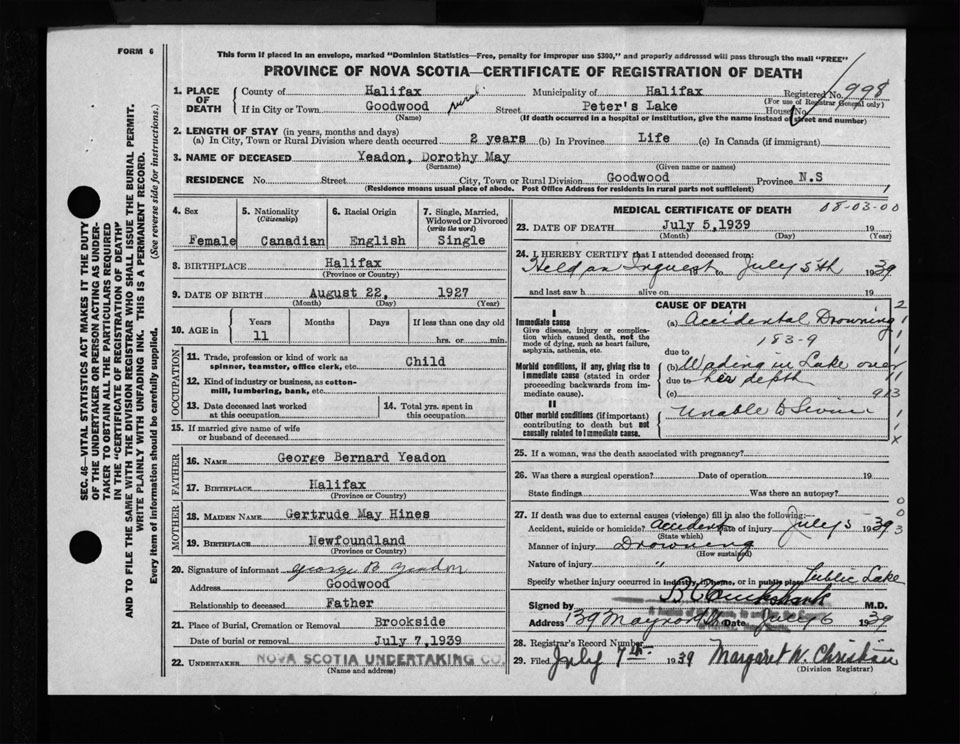 FORM 6
This form if placed in an envelope, marked "Dominion Statistics—Free, penalty for improper use $300," and properly addressed will pass through the mail "FREE"
PROVINCE OF NOVA SCOTIA—CERTIFICATE OF REGISTRATION OF DEATH
SEC. 46—VITAL STATISTICS ACT MAKES IT THE DUTY
OF THE UNDERTAKER OR PERSON ACTING AS UNDER-
TAKER TO OBTAIN ALL THE PARTICULARS REQUIRED
IN THE "CERTIFICATE OF REGISTRATION OF DEATH"
AND TO FILE THE SAME WITH THE DIVISION REGISTRAR WHO SHALL ISSUE THE BURIAL PERMIT.
WRITE PLAINLY WITH UNFADING INK. THIS IS A PERMANENT RECORD.
Every item of information should be carefully supplied. (See reverse side for instructions.)
1. PLACE OF DEATH
County of Halifax Municipality of Halifax Registered No. 998
(For use of Registrar General only)
If in City or Town Goodwood rural Street Peter's Lake House No.
(Name) (If death occurred in a hospital or institution, give the name instead of street and number)
2. LENGTH OF STAY (in years, months and days)
(a) In City, Town or Rural Division where death occurred 2 years (b) In Province Life (c) In Canada (if immigrant)
3. NAME OF DECEASED Yeadon, Dorothy May
(Surname) (Given name or names)
RESIDENCE No. Street City, Town or Rural Division Goodwood Province N.S
(Residence means usual place of abode. Post Office Address for residents in rural parts not sufficient) 1
4. Sex Female
5. Nationality (Citizenship) Canadian
6. Racial Origin English
7. Single, Married, Widowed or Divorced (write the word) Single
8. BIRTHPLACE Halifax
(Province or Country)
9. DATE OF BIRTH August 22, 1927
(Month) (Day) (Year)
10. AGE in Years 11 Months Days If less than one day old hrs. or min.
OCCUPATION
11. Trade, profession or kind of work as
spinner, teamster, office clerk, etc. Child
12. Kind of industry or business, as cotton-
mill, lumbering, bank, etc.
13. Date deceased last worked
at this occupation
14. Total yrs. spent in
this occupation
15. If married give name of wife
or husband of deceased
FATHER
16. NAME George Bernard Yeadon
17. BIRTHPLACE Halifax
(Province or Country)
MOTHER
18. MAIDEN NAME Gertrude May Hines
19. BIRTHPLACE Newfoundland
(Province or Country)
20. Signature of informant George B Yeadon
Address Goodwood
Relationship to deceased Father
21. Place of Burial, Cremation or Removal Brookside
Date of burial or removal July 7, 1939
22. UNDERTAKER NOVA SCOTIA UNDERTAKING CO.
(Name and address)
MEDICAL CERTIFICATE OF DEATH 08-03-00
23. DATE OF DEATH July 5, 1939 19
(Month) (Day) (Year)
24. I HEREBY CERTIFY that I attended deceased from:
Held an Inquest 19 to July 5th 1939
and last saw h alive on 19
CAUSE OF DEATH
I
Immediate cause
Give disease, injury or complica-
tion which caused death, not the
mode of dying, such as heart failure,
asphyxia, asthenia, etc.
(a) Accidental Drowning
183-9
due to
Morbid conditions, if any, giving rise to
immediate cause (stated in order
proceeding backwards from im-
mediate cause).
(b) Wading in Lake over
due to her depth
(c) 913
II
Other morbid conditions (if important)
contributing to death but not
causally related to immediate cause.
Unable to Swim
25. If a woman, was the death associated with pregnancy?
26. Was there a surgical operation? Date of operation 19
State findings Was there an autopsy?
27. If death was due to external causes (violence) fill in also the following:
Accident, suicide or homicide? Accident Date of injury July 5 1939
(State which)
Manner of injury Drowning
(How sustained)
Nature of injury "
Specify whether injury occurred in industry, in home, or in public place Public Lake
Signed by M.D.
Address 139 Date July 6 1939
28. Registrar's Record Number
29. Filed July 7th 1939 Margaret W. Christian
(Division Registrar)